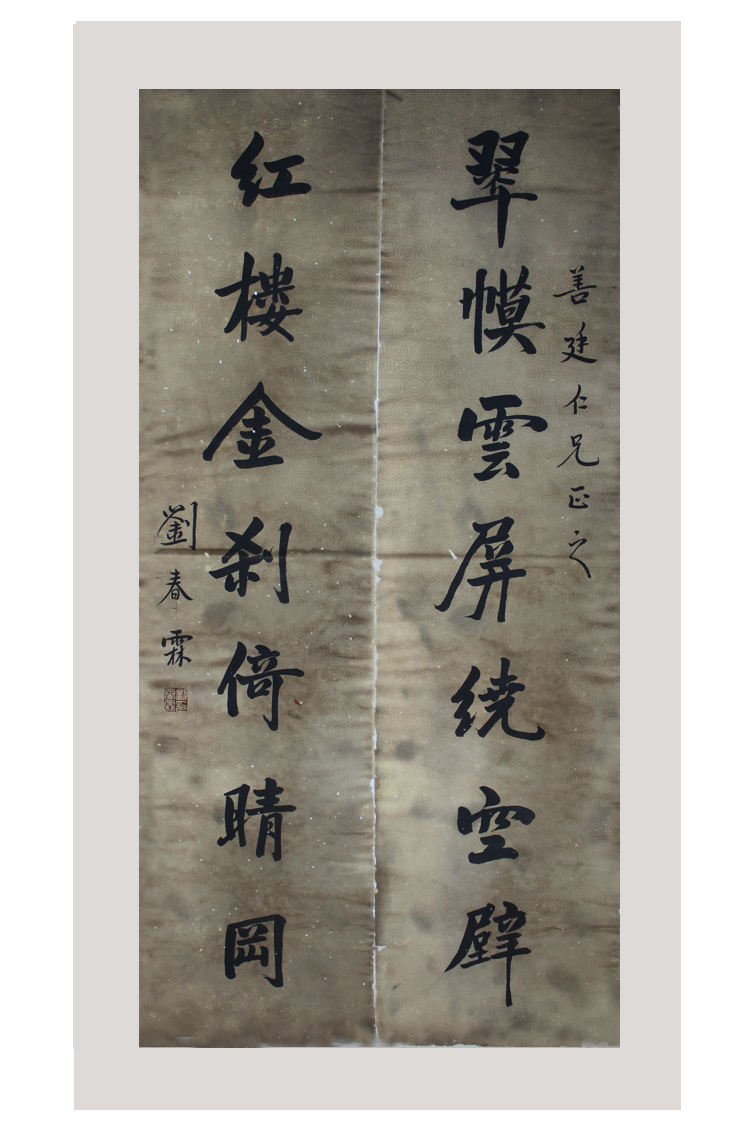 善廷仁兄正之
翠幙雲屏繞空壁
紅樓金刹倚晴岡
劉春霖